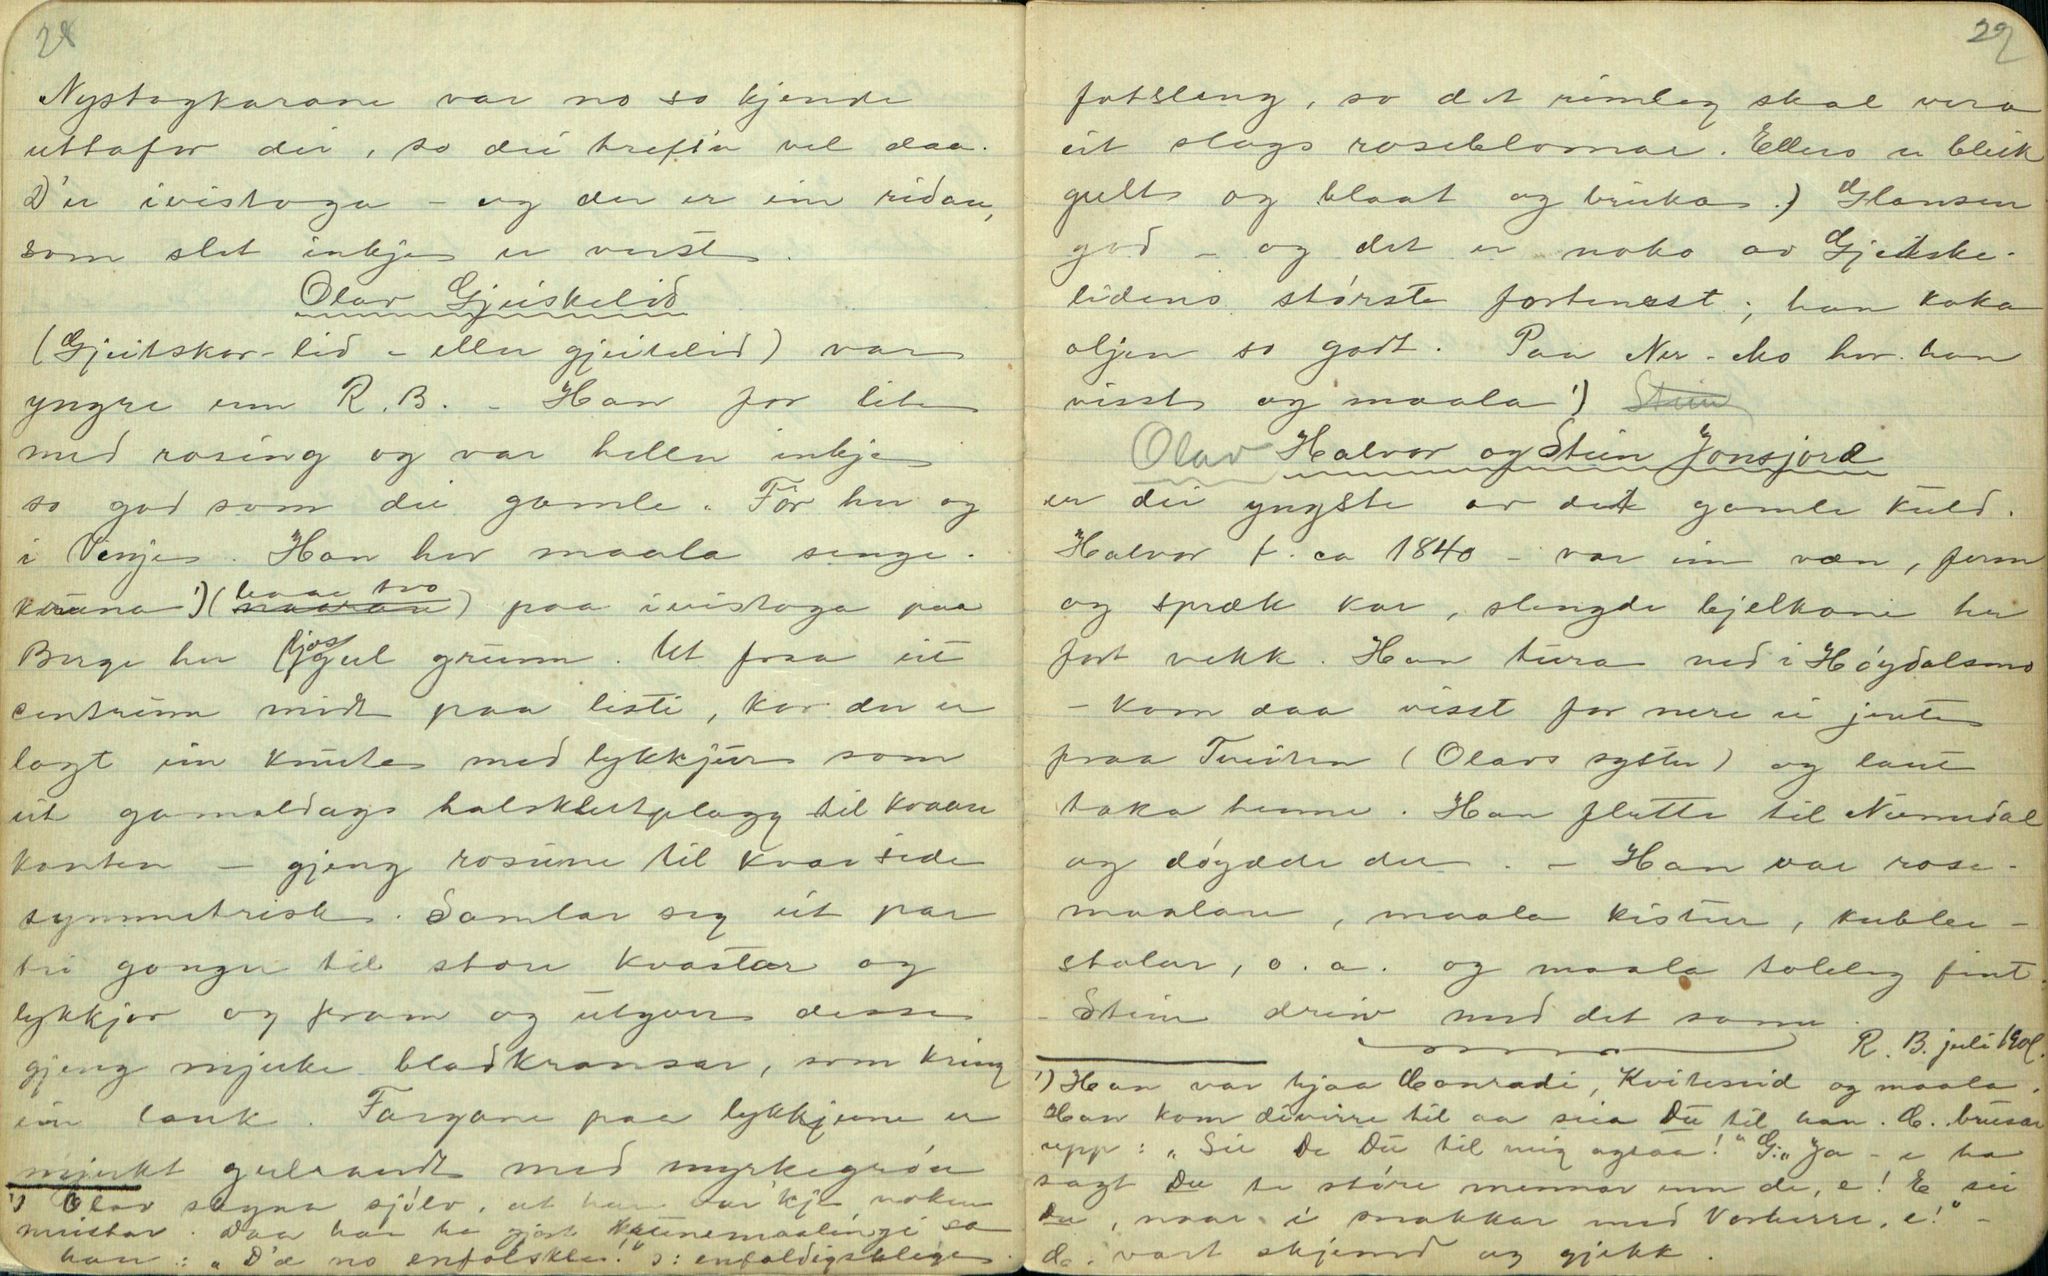 28
Nystogkarane var no so kjende
uttafor dei, so dei trefte vel daa.
D'er ivistoga - og der er ein ridau,
som slet inkje er verst.
Olav Gjeiskelid
(Gjeitskor-lid - eller gjeitelid) var
yngre enn R. B. - Han for lite
med rosing og var heller inkje
so god som dei gamle. For her og
i Vinje. Han hev maala senge-
kruna ¹) ( ) paa ivistoga paa
Berge her (ljosgul grunn. Ut fraa eit
centrum midt paa listi, kor der er
lagt ein knute med lykkjur som
eit gamaldags halsklutplagg til kvaar
kanten - gjeng rosune til kvar side
symmetrisk. Samlar seg eit par
tri gonger til store kvastar og
lykkjor og fram og utyver desse
gjeng mjuke bladkransar, som kring
ein lauk. Fargane paa lykkjune er
mjukt gulraudt med myrkegrøn
¹) Olav sagna sjølv, at han var'kje noken
meistar. Daa han ha gjort krunemaalingi sa
han: "D'æ no enfolskle!" ɔ: enfaldigsklege.
29
fotsleng, so det rimleg skal vera
eit slags roseblomar. Ellers er bleik
gult og blaat og bruka.) Glansen
god - og det er noko av Gjeitske-
lidens største fortenest; han koka
oljen so godt. Paa Ner-Mo hev han
visst og maala ¹) Stein
Olav Halvor og Stein Jonsjord
er dei yngste av det gamle kuld.
Halvor f. ca 1840 - var ein væn, ferm
og spræk kar, slengde kjelkane her
fort vekk. Han tura ned i Høydalsmo
- kom daa visst for nere ei jente
fraa Tveiten (Olavs syster) og laut
taka henne. Han flutte til Numedal
og døydde der. - Han var rose-
maalar, maala kistur, kubbe-
stolar, o. a. og maala toleleg fint.
- Stein dreiv med det same.
R. B. juli 1908.
¹) Han var hjaa Conradi, Kviteseid og maala.
Han kom divirre til aa seia Du til han. C. brusar
upp: "Sei De Du til mig ogsaa!" G: "Ja - e ha
sagt Du te større mennar enn de, e! E sei
Du, naar i snakkar med Vorherre, e!" -
C. vart skjemd og gjekk.